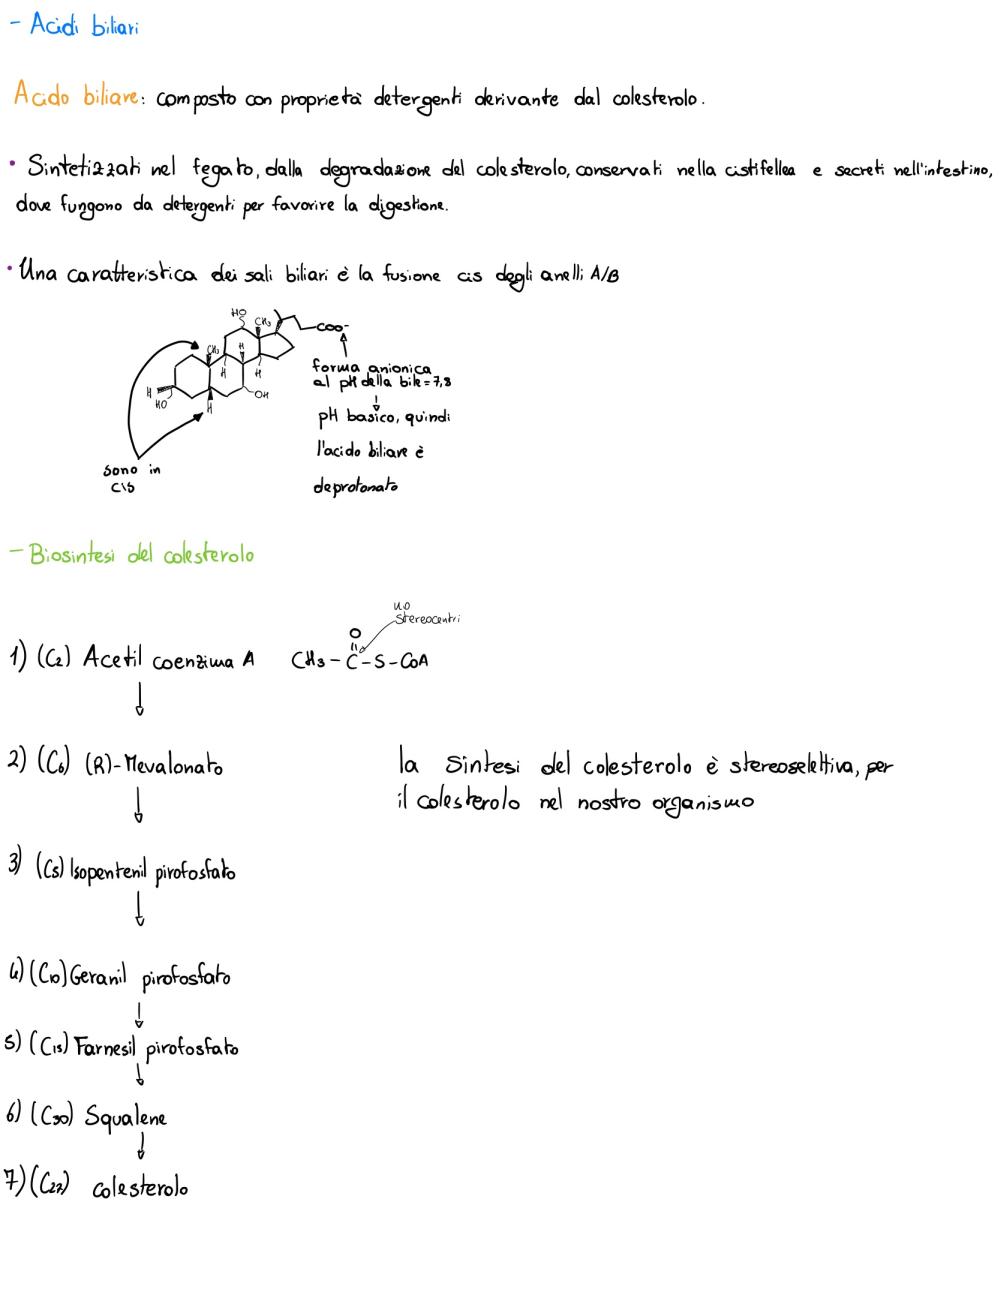 - Acidi biliari
Acido biliare: composto con proprietà detergenti derivante dal colesterolo.
• Sintetizzati nel fegato, dalla degradazione del colesterolo, conservati nella cistifellea e secreti nell'intestino,
dove fungono da detergenti per favorire la digestione.
• Una caratteristica dei sali biliari è la fusione cis degli anelli A/B
HO
CH₃
COO-
CH₃
H
H
H
H
HO
OH
H
forma anionica
al pH della bile = 7,8
pH basico, quindi
l'acido biliare è
deprotonato
sono in
cis
- Biosintesi del colesterolo
no
stereocentri
O
1) (C₂) Acetil coenzima A CH₃ - C - S - CoA
2) (C₆) (R)-Mevalonato
la sintesi del colesterolo è stereoselettiva, per
il colesterolo nel nostro organismo
3) (C₅) Isopentenil pirofosfato
4) (C₁₀) Geranil pirofosfato
5) (C₁₅) Farnesil pirofosfato
6) (C₃₀) Squalene
7) (C₂₇) colesterolo